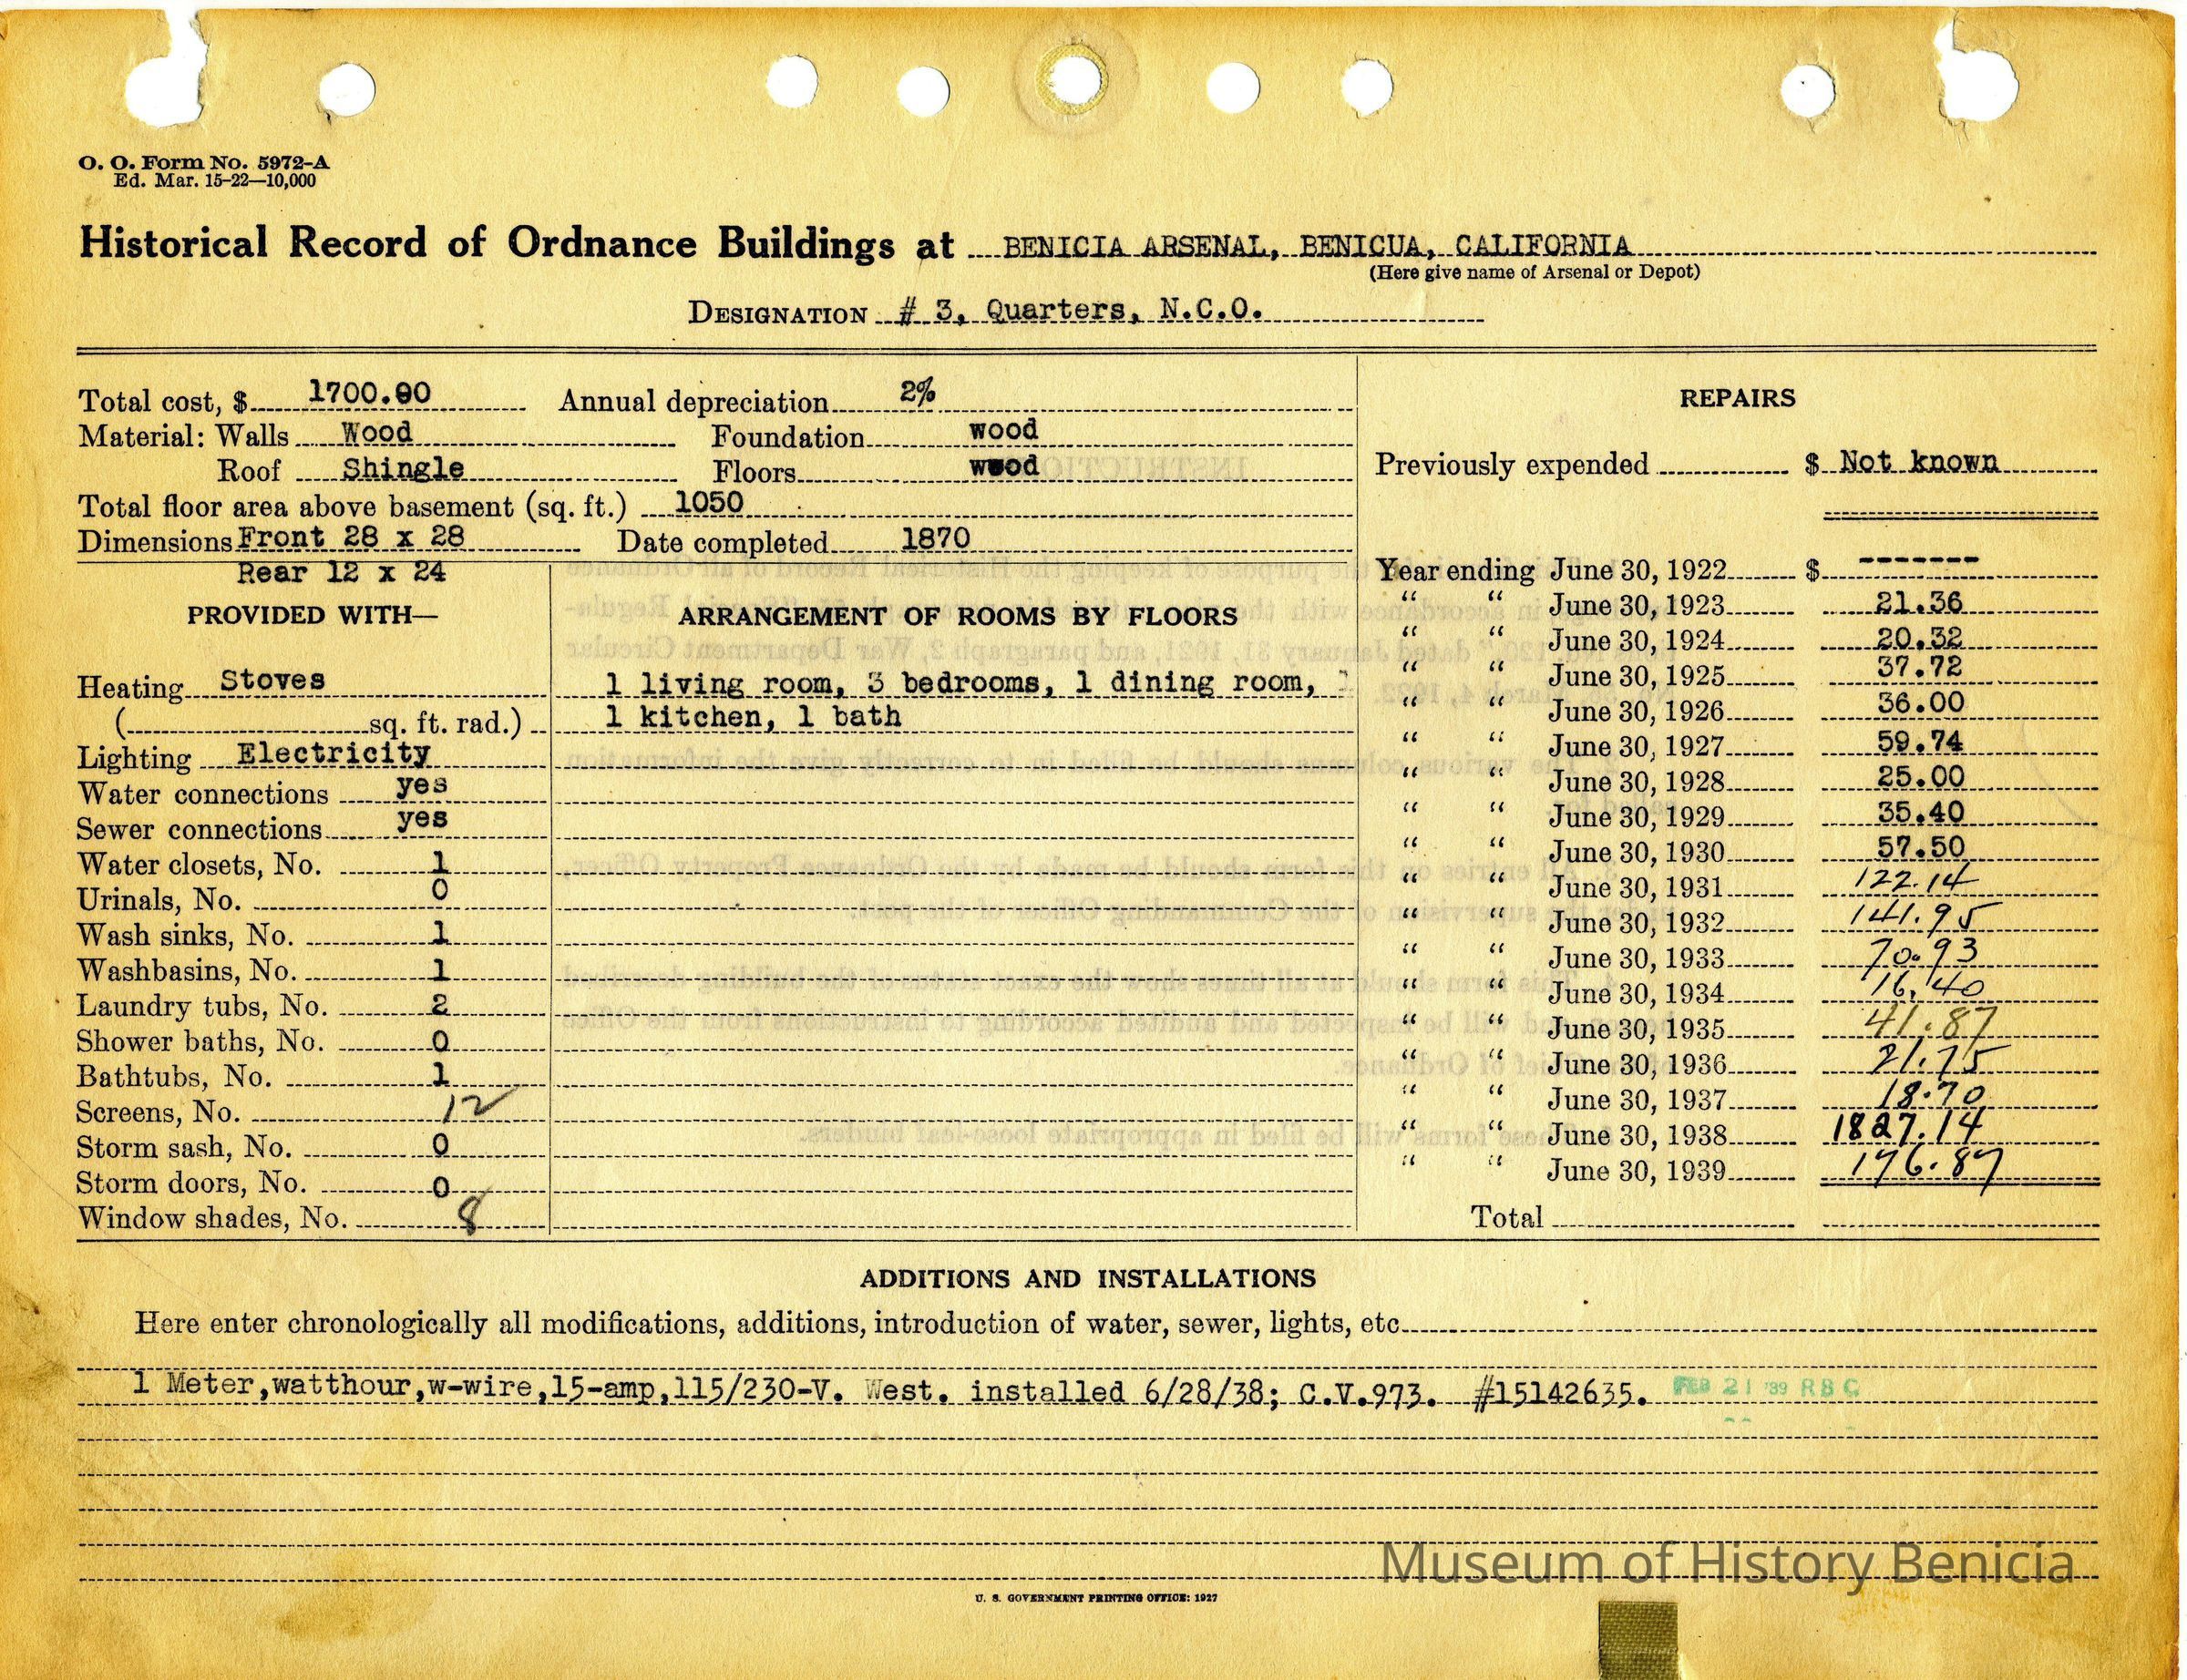 O. O. Form No. 5972-A
Ed. Mar. 15-22—10,000
Historical Record of Ordnance Buildings at BENICIA ARSENAL, BENICUA, CALIFORNIA
(Here give name of Arsenal or Depot)
DESIGNATION # 3, Quarters, N.C.O.
Total cost, $ 1700.00 Annual depreciation 2%
Material: Walls Wood Foundation wood
Roof Shingle Floors wood
Total floor area above basement (sq. ft.) 1050
Dimensions Front 28 x 28 Date completed 1870
Rear 12 x 24
PROVIDED WITH—
Heating Stoves
( sq. ft. rad.)
Lighting Electricity
Water connections yes
Sewer connections yes
Water closets, No. 1
Urinals, No. 0
Wash sinks, No. 1
Washbasins, No. 1
Laundry tubs, No. 2
Shower baths, No. 0
Bathtubs, No. 1
Screens, No. 12
Storm sash, No. 0
Storm doors, No. 0
Window shades, No. 8
ARRANGEMENT OF ROOMS BY FLOORS
1 living room, 3 bedrooms, 1 dining room,
1 kitchen, 1 bath
REPAIRS
Previously expended $ Not known
Year ending June 30, 1922 $ -------
" " June 30, 1923 21.36
" " June 30, 1924 20.32
" " June 30, 1925 37.72
" " June 30, 1926 36.00
" " June 30, 1927 59.74
" " June 30, 1928 25.00
" " June 30, 1929 35.40
" " June 30, 1930 57.50
" " June 30, 1931 122.14
" " June 30, 1932 141.95
" " June 30, 1933 70.93
" " June 30, 1934 16.40
" " June 30, 1935 41.87
" " June 30, 1936 21.75
" " June 30, 1937 18.70
" " June 30, 1938 1827.14
" " June 30, 1939 176.87
Total
ADDITIONS AND INSTALLATIONS
Here enter chronologically all modifications, additions, introduction of water, sewer, lights, etc.
1 Meter,watthour,w-wire,15-amp,115/230-V. West. installed 6/28/38; C.V.973. #15142635. FEB 21 '39 RBC
Museum of History Benicia
U. S. GOVERNMENT PRINTING OFFICE: 1927